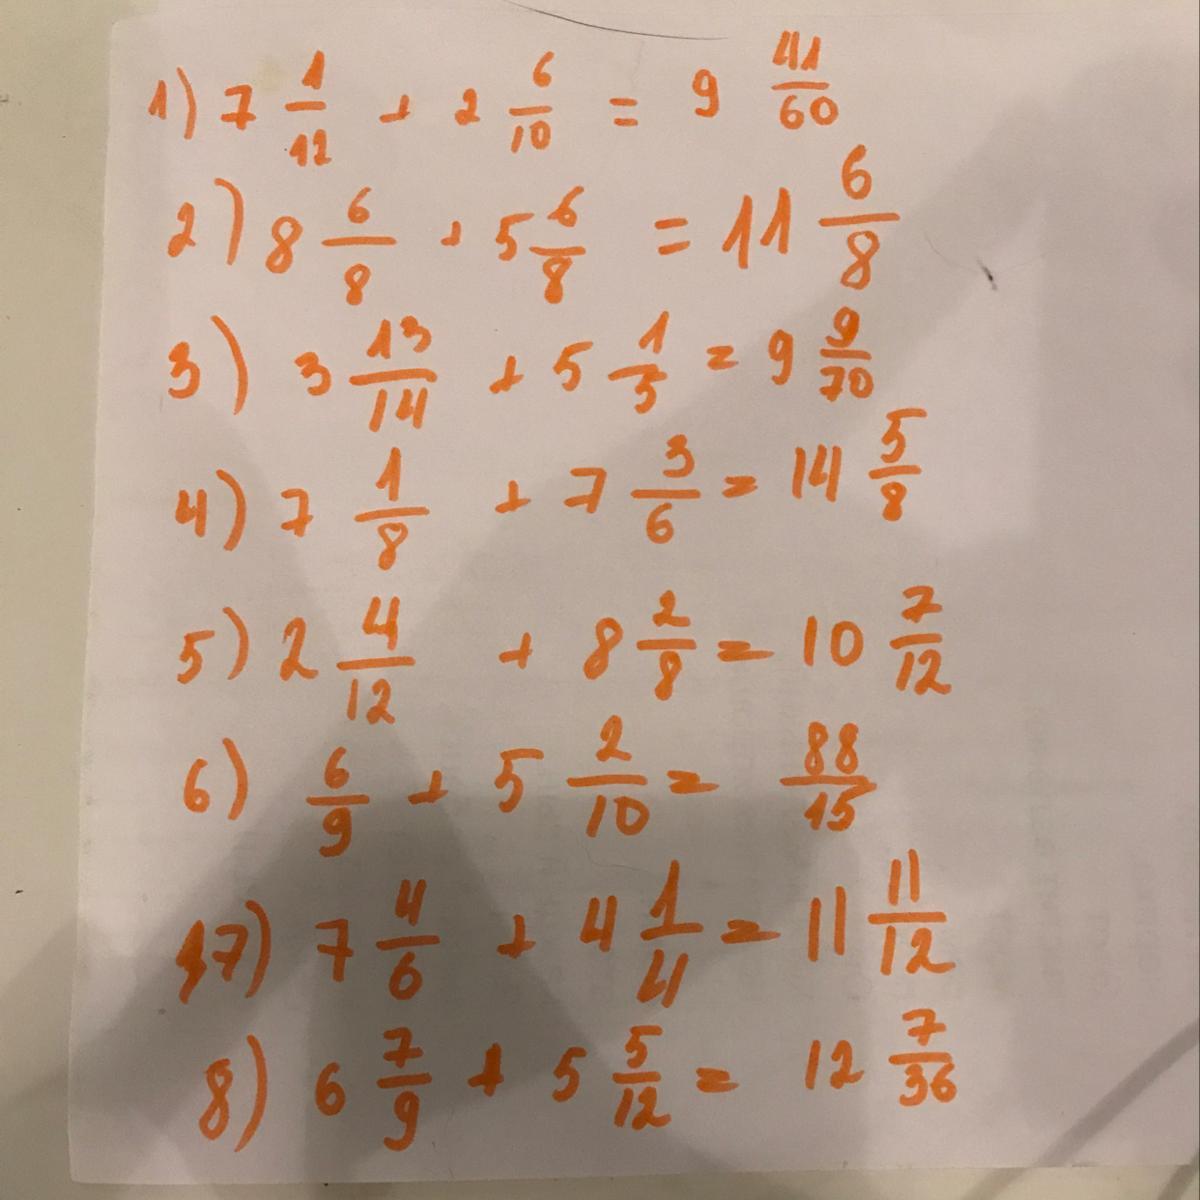 1) 7 1/12 + 2 6/10 = 9 41/60
2) 8 6/8 + 5 6/8 = 11 6/8
3) 3 13/14 + 5 1/5 = 9 9/70
4) 7 1/8 + 7 3/6 = 14 5/8
5) 2 4/12 + 8 2/8 = 10 7/12
6) 6/9 + 5 2/10 = 88/15
7) 7 4/6 + 4 1/4 = 11 11/12
8) 6 7/9 + 5 5/12 = 12 7/36